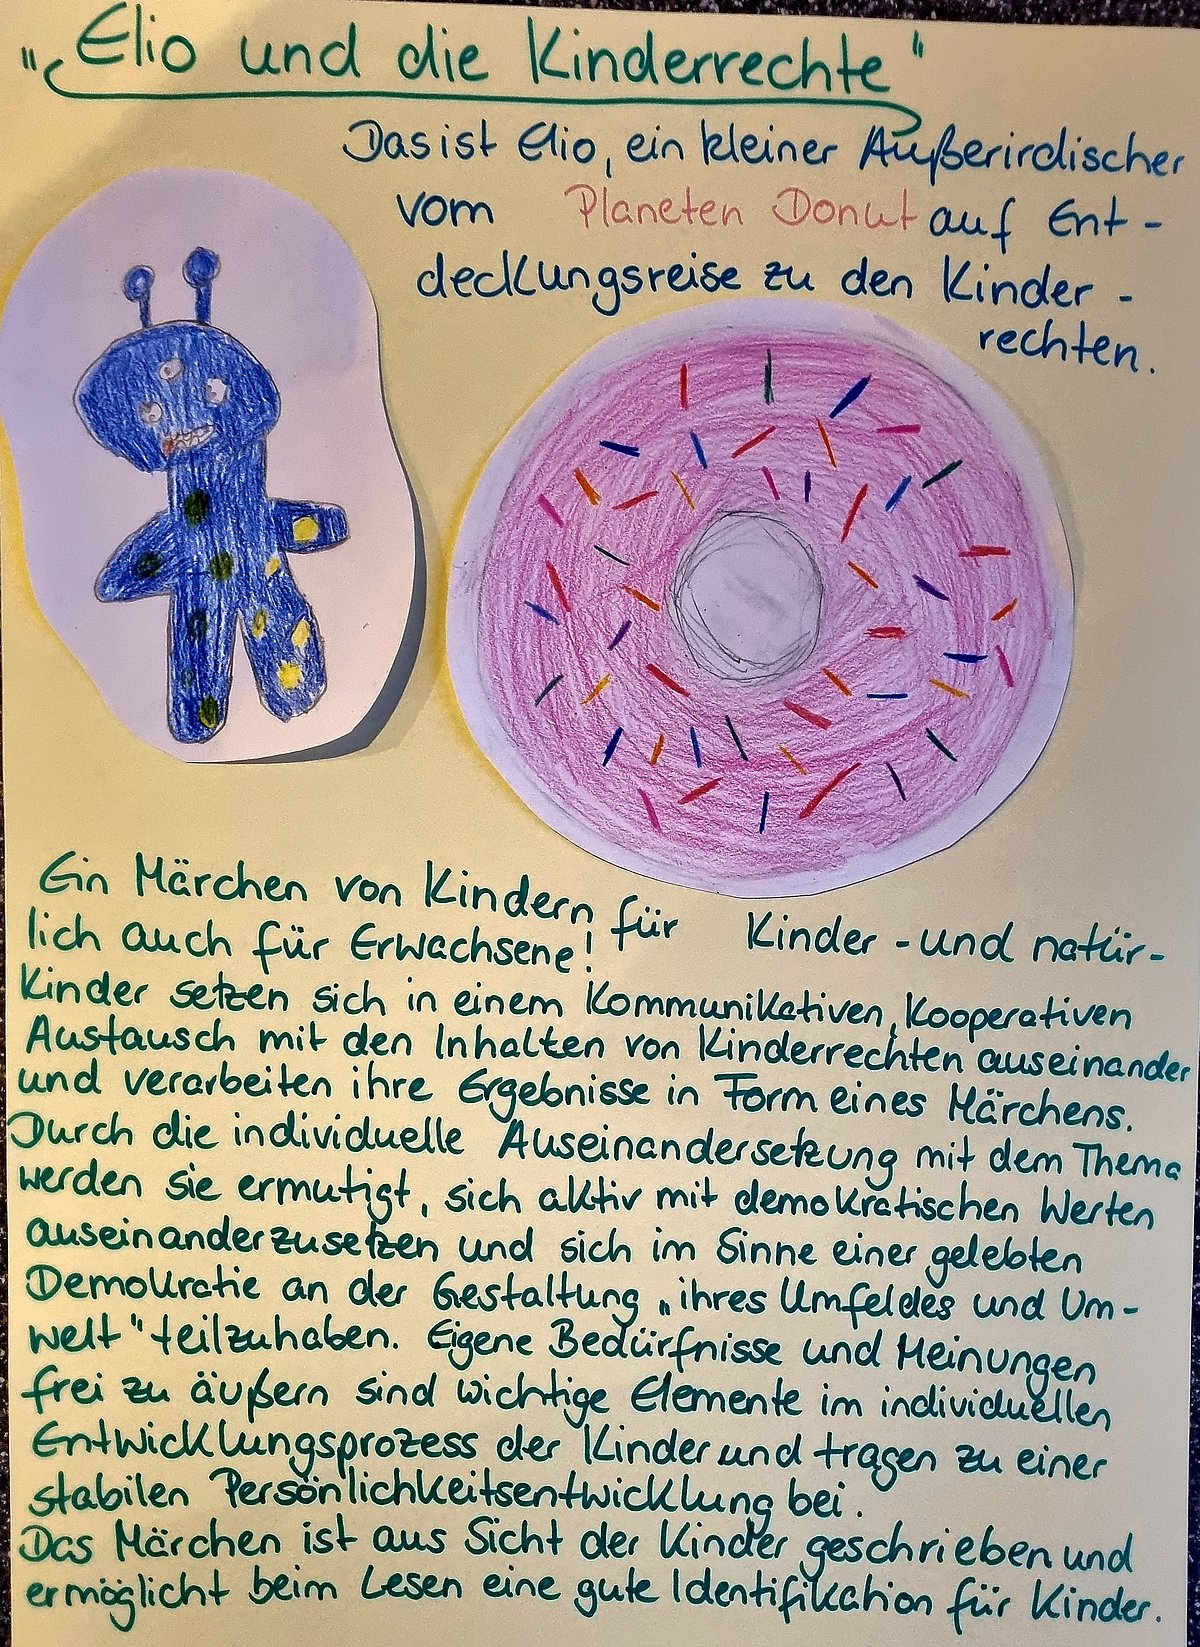 "Elio und die Kinderrechte"
Das ist Elio, ein kleiner Außerirdischer
vom Planeten Donut auf Ent-
deckungsreise zu den Kinder-
rechten.
Ein Märchen von Kindern für Kinder - und natür-
lich auch für Erwachsene!
Kinder setzen sich in einem Kommunikativen, Kooperativen
Austausch mit den Inhalten von Kinderrechten auseinander
und verarbeiten ihre Ergebnisse in Form eines Märchens.
Durch die individuelle Auseinandersetzung mit dem Thema
werden sie ermutigt, sich aktiv mit demokratischen Werten
auseinanderzusetzen und sich im Sinne einer gelebten
Demokratie an der Gestaltung „ihres Umfeldes und Um-
welt" teilzuhaben. Eigene Bedürfnisse und Meinungen
frei zu äußern sind wichtige Elemente im individuellen
Entwicklungsprozess der Kinder und tragen zu einer
stabilen Persönlichkeitsentwicklung bei.
Das Märchen ist aus Sicht der Kinder geschrieben und
ermöglicht beim Lesen eine gute Identifikation für Kinder.